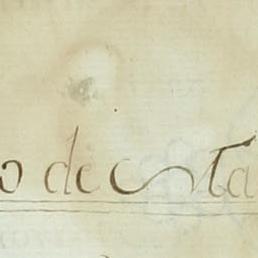 o de Ta